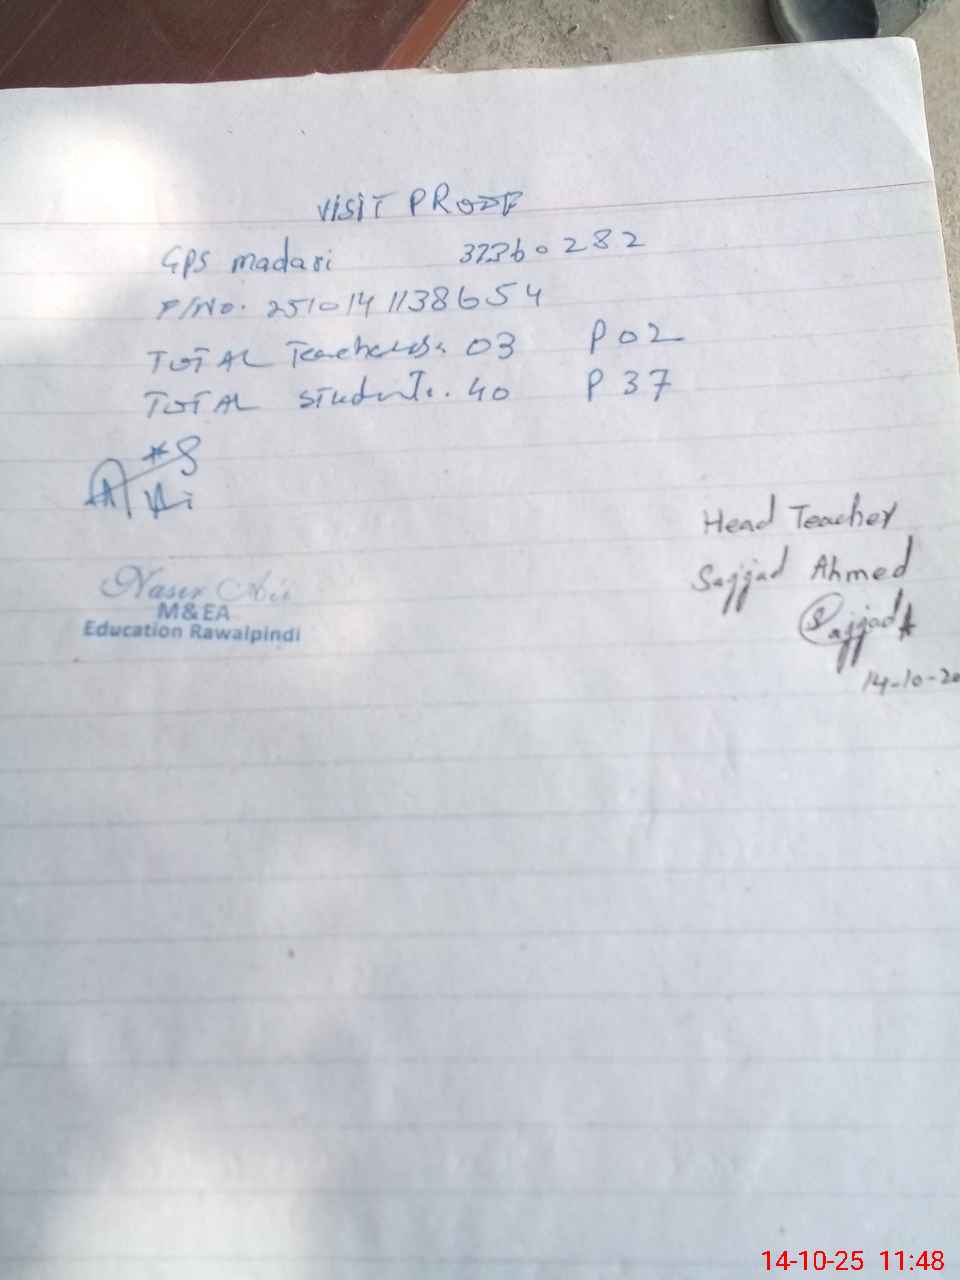 VISIT PROOF
GPS madari 37360282
F/No. 251014 1138654
TOTAL Teachers. 03 P 02
TOTAL Students. 40 P 37
Naser Ali
M&EA
Education Rawalpindi
Head Teacher
Sajjad Ahmed
Sajjad A
14-10-20
14-10-25 11:48